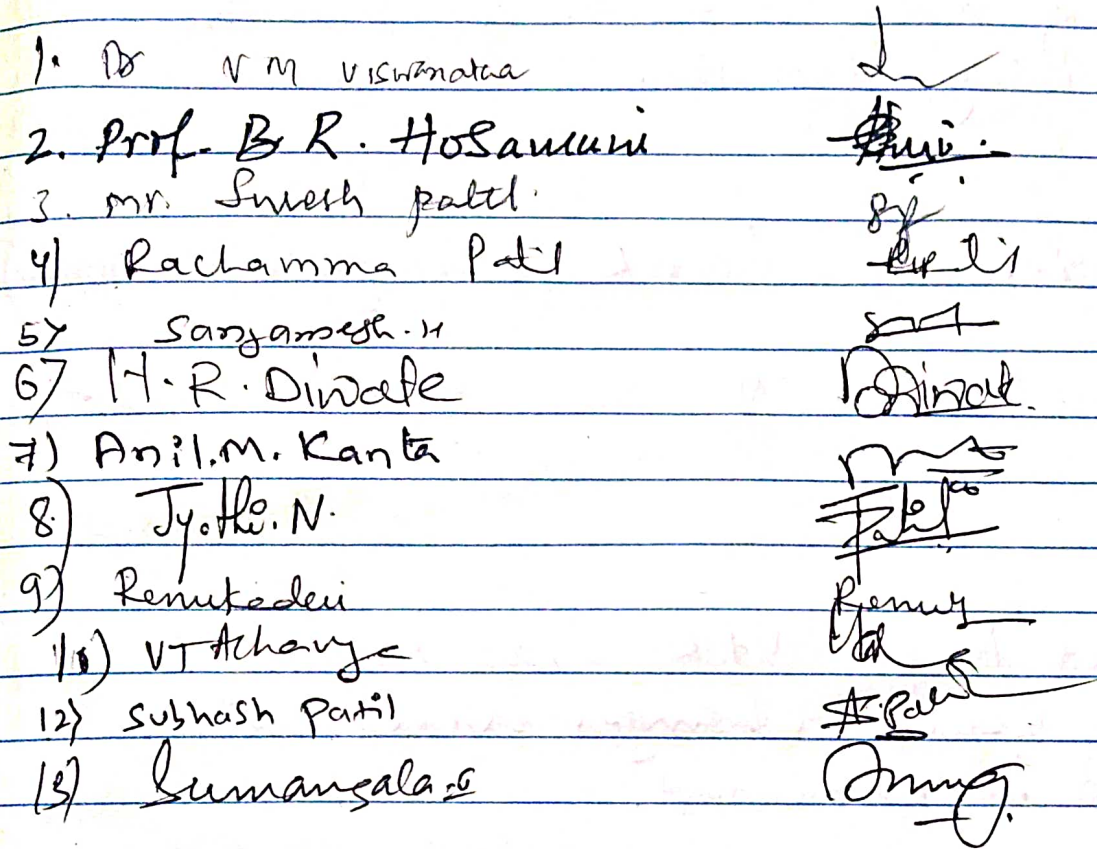 1. Dr V M Viswanataa
2. Prof. B R. Hosamuni
3. mr. Suresh patil.
4) Rachamma Patil
5) Sangamesh.H
6) H.R.Diwate Diwate.
7) Anil.M.Kanta
8) Jyothi.N. Patil
9) Renukadevi Renu
VT Acharya
12) subhash Patil S.Patil
13) Sumangala.G